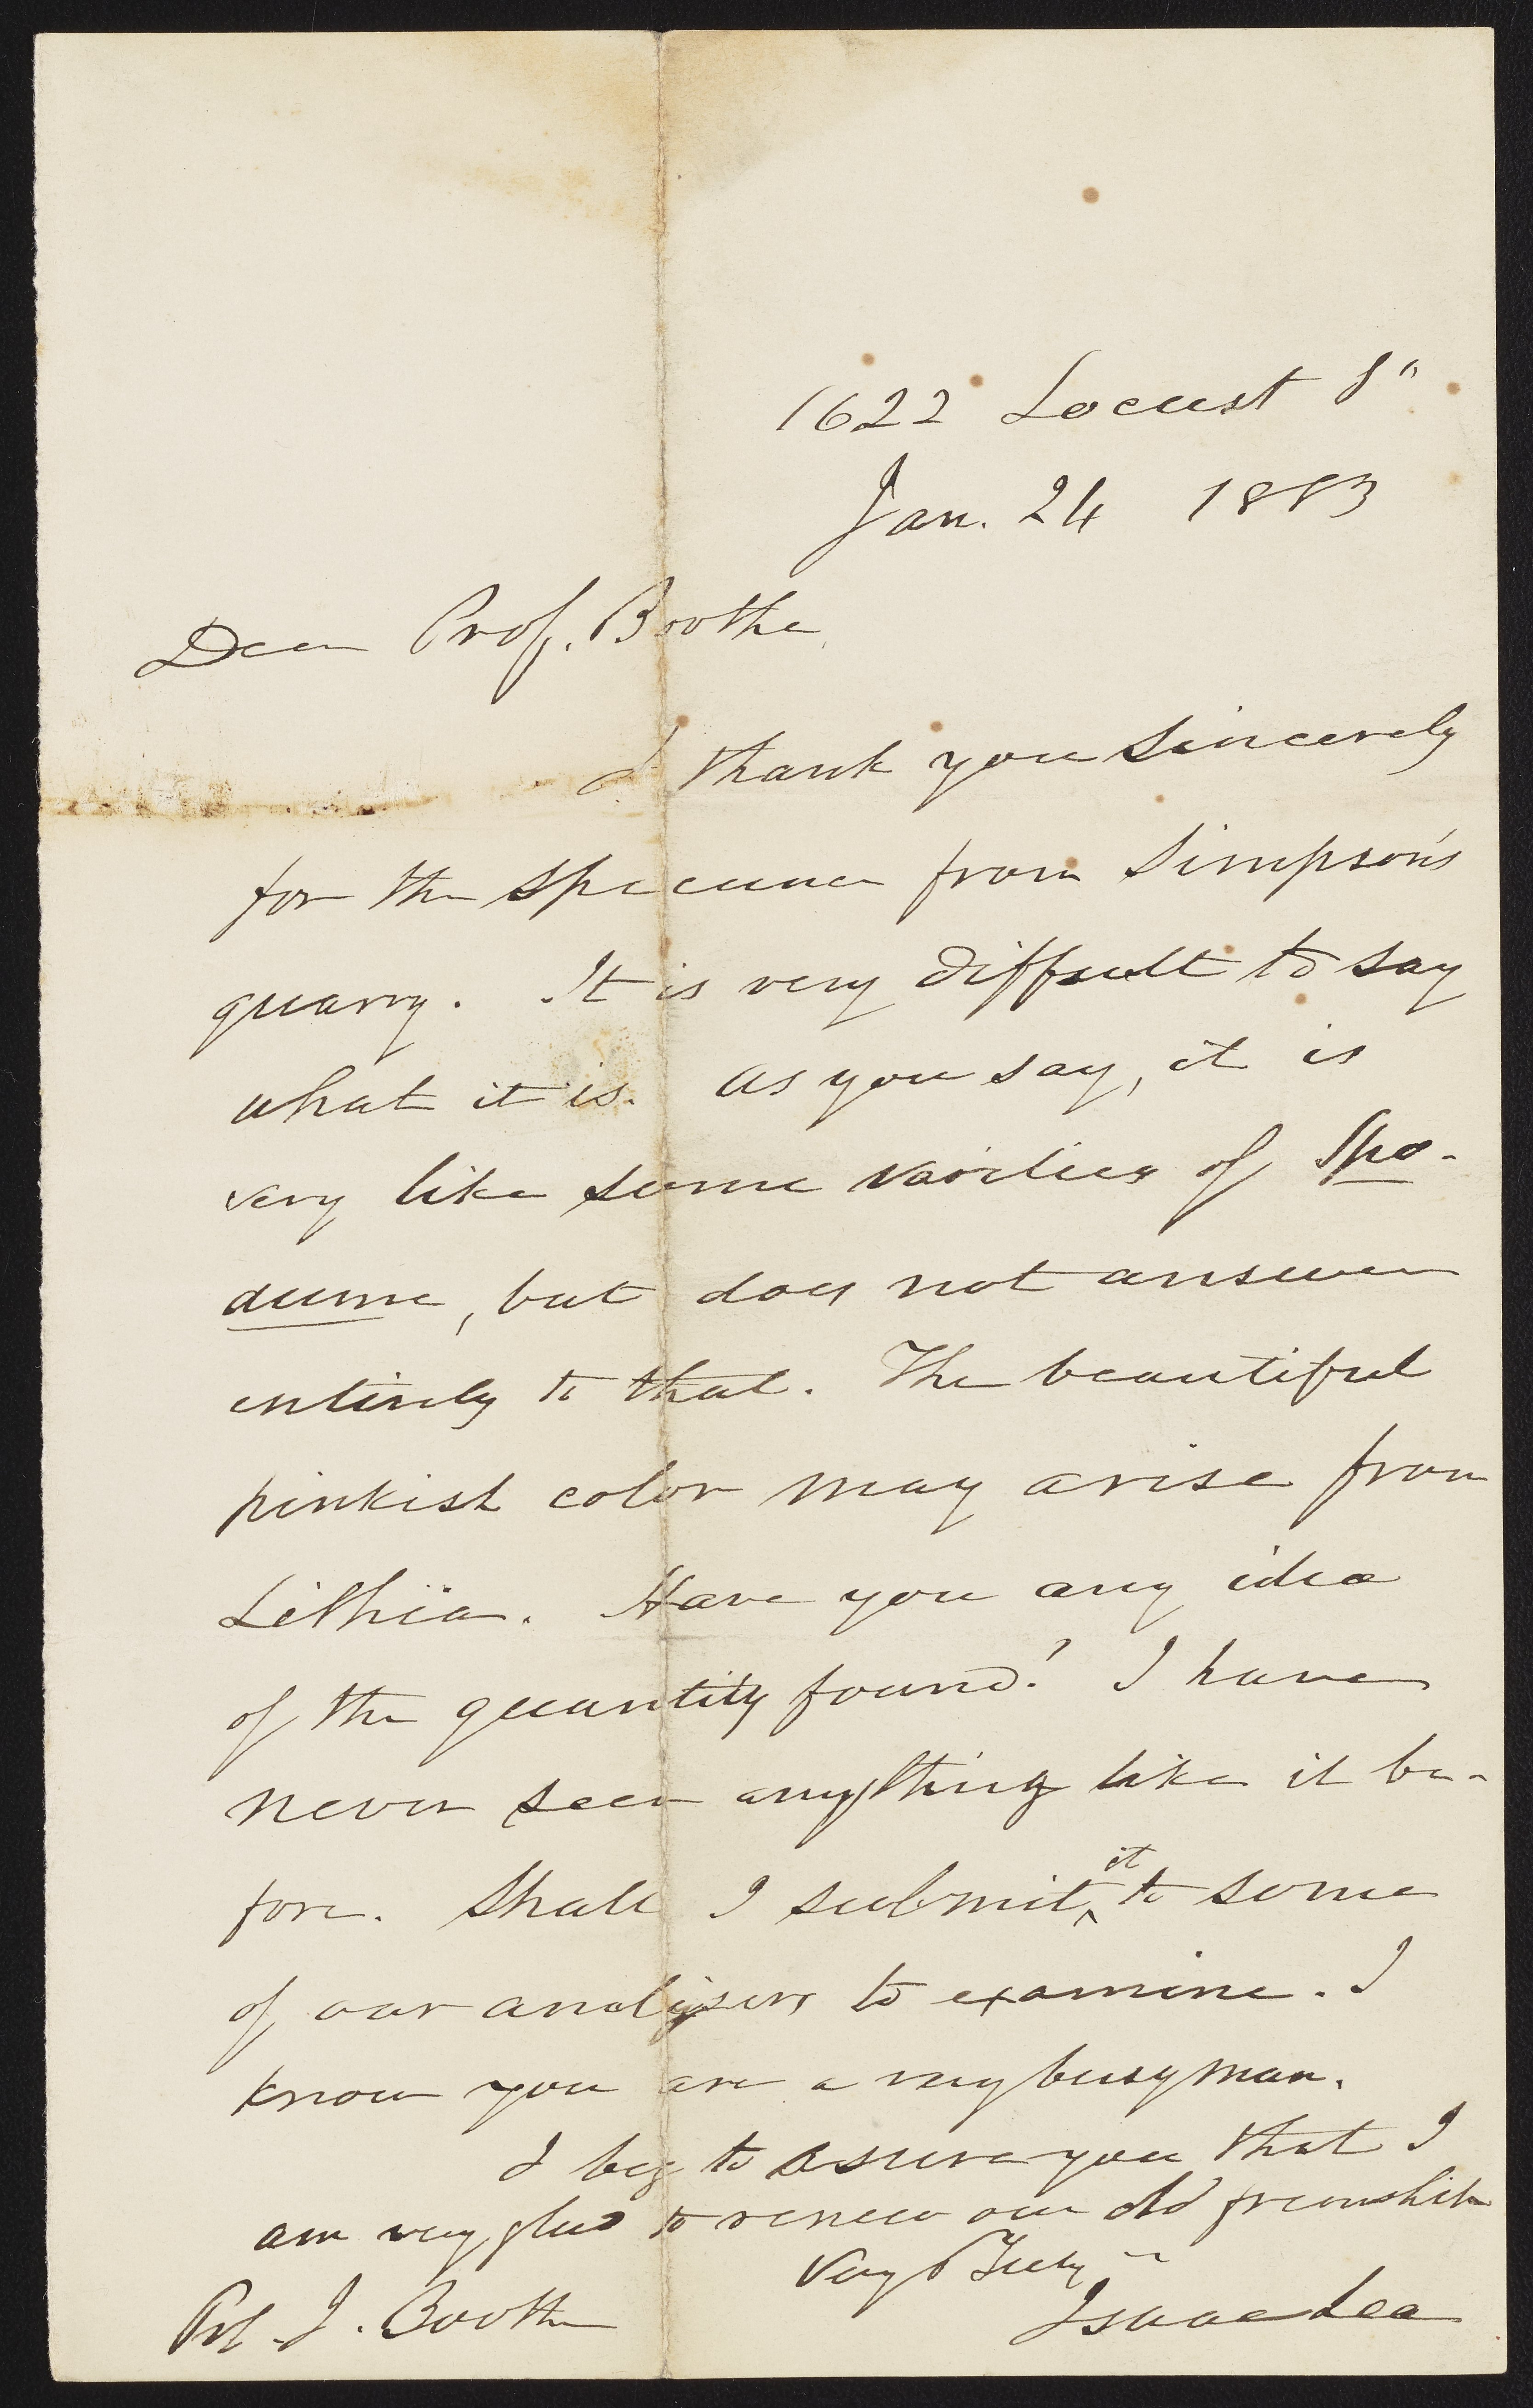 1622 Locust St
Jan. 24 1883
Dear Prof. Boothe
I thank you sincerely
for the specimen from Simpson's
quarry. It is very difficult to say
what it is. As you say, it is
very like some varieties of Spo-
dume, but does not answer
entirely to that. The beautiful
pinkish color may arise from
Lithia. Have you any idea
of the quantity found? I have
never seen anything like it be-
fore. Shall I submit it to some
of our analysers to examine. I
know you are a very busy man.
I beg to assure you that I
am very glad to renew our old friendship
Very Truly
Isaac Lea
Prof J. Boothe